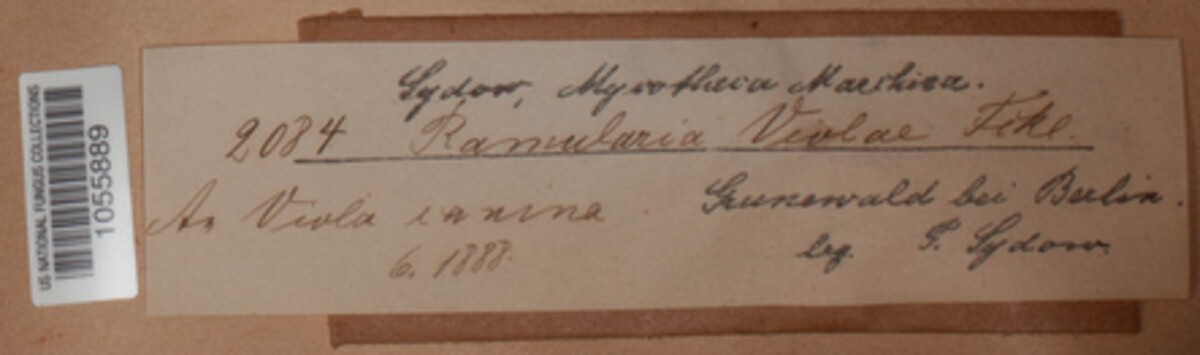 US NATIONAL FUNGUS COLLECTIONS
1055889
Sydow, Mycotheca Marchica.
2084 Ramularia Violae Fckl.
An Viola canina.
6. 1888.
Grunewald bei Berlin.
leg. P. Sydow.